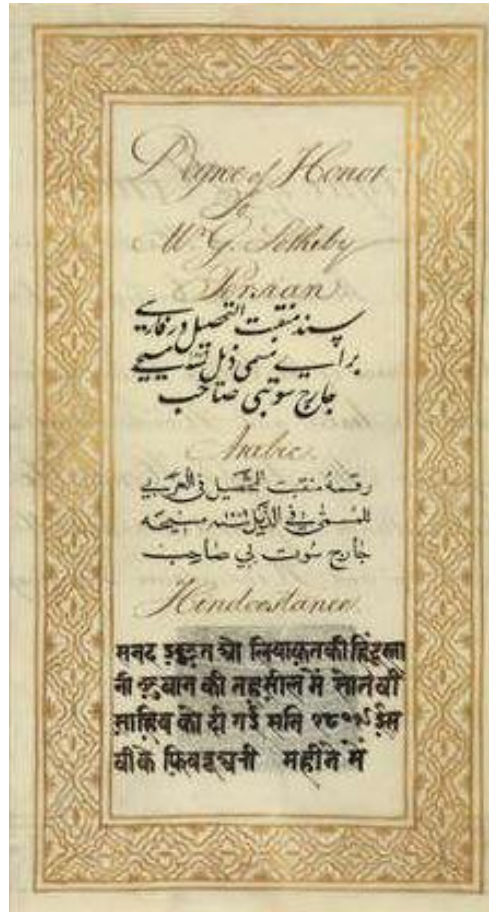 Degree of Honor
To
W. G. Sotheby
Persian
سند منقبت التحصیل در فارسی
برای مسمی ذیل مسیحی
جارج سوتبی صاحب
Arabic
رقمة منقبت التحصيل في العربي
للمسمّى في الذيل سنه مسيحيه
جارج سوت بي صاحب
Hindoostanee
सनद इज़्ज़त औ लियाक़त की हिंदूस्ता
नी ज़ुबान की तहसील में सोतबी
साहिब को दी गई सनि ईस
वी के महीने में